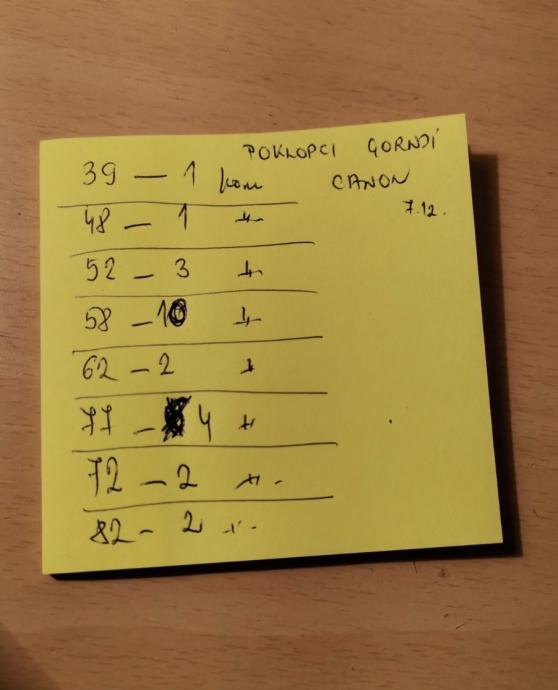 POKLOPCI GORNJI
CANON
7.12.
39 — 1 kom
48 — 1 -"-
52 — 3 -"-
58 — 10 -"-
62 — 2 -"-
77 — 4 -"-
72 — 2 -"-
82 - 2 -"-